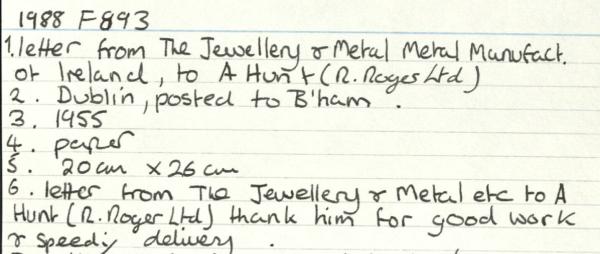 1988 F893
1. letter from The Jewellery & Metal Metal Manufact.
of Ireland, to A Hunt (R. Roger Ltd)
2. Dublin, posted to B'ham.
3. 1955
4. paper
5. 20cm x 26 cm
6. letter from The Jewellery & Metal etc to A
Hunt (R. Roger Ltd) thank him for good work
& speedy delivery.